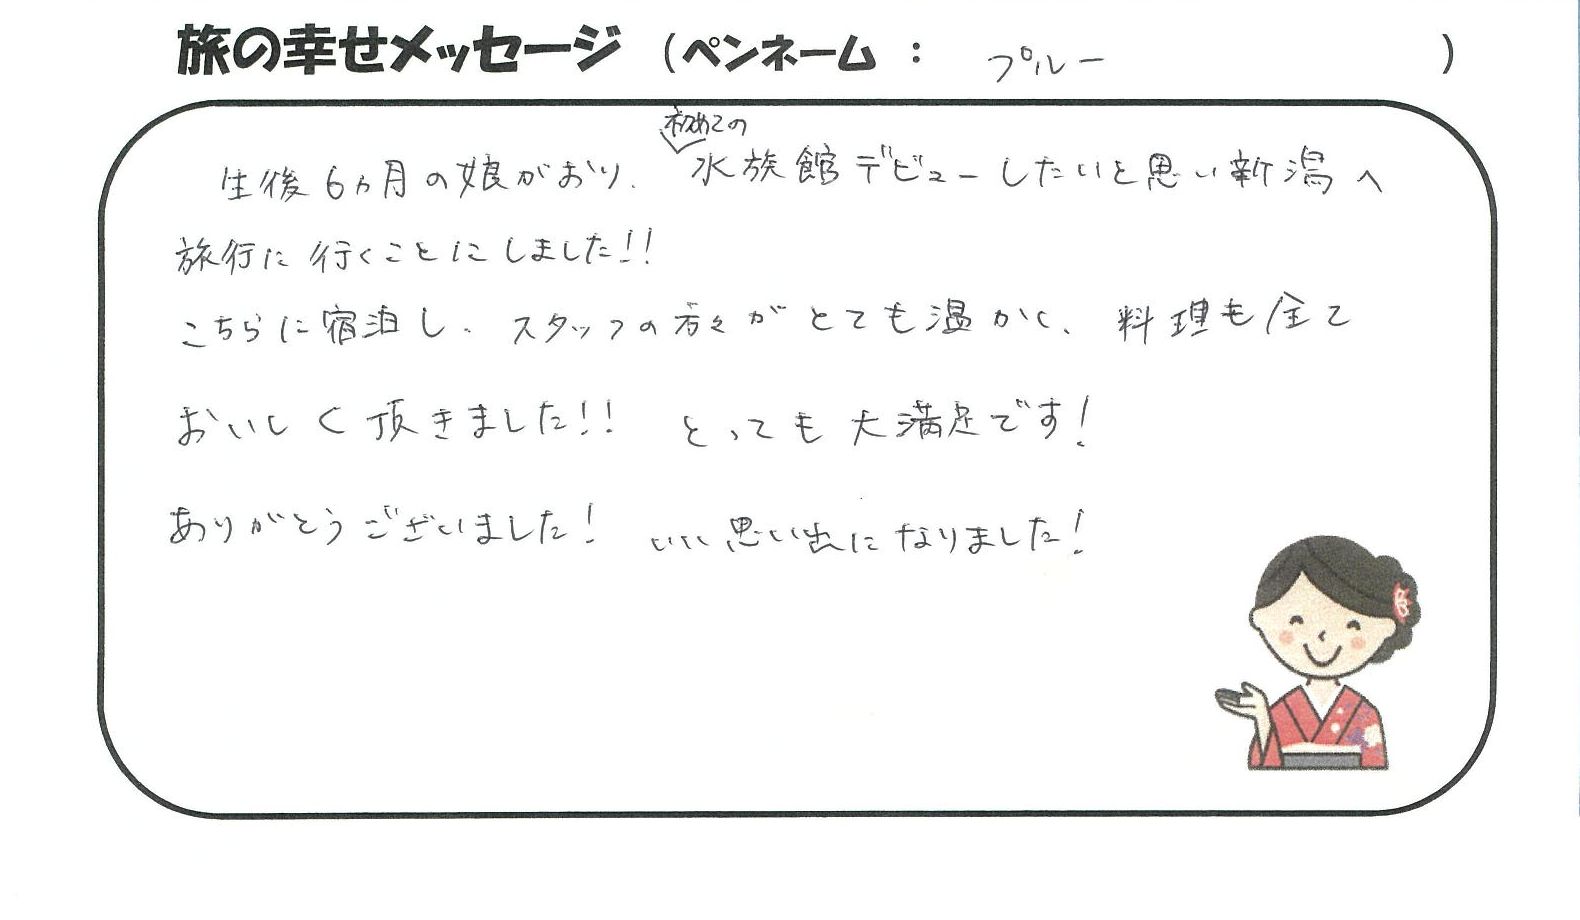 旅の幸せメッセージ (ペンネーム : プルー )
初めての
生後6ヵ月の娘がおり、水族館デビューしたいと思い新潟へ
旅行に行くことにしました!!
こちらに宿泊し、スタッフの方々がとても温かく、料理も全て
おいしく頂きました!! とっても大満足です!
ありがとうございました! いい思い出になりました!